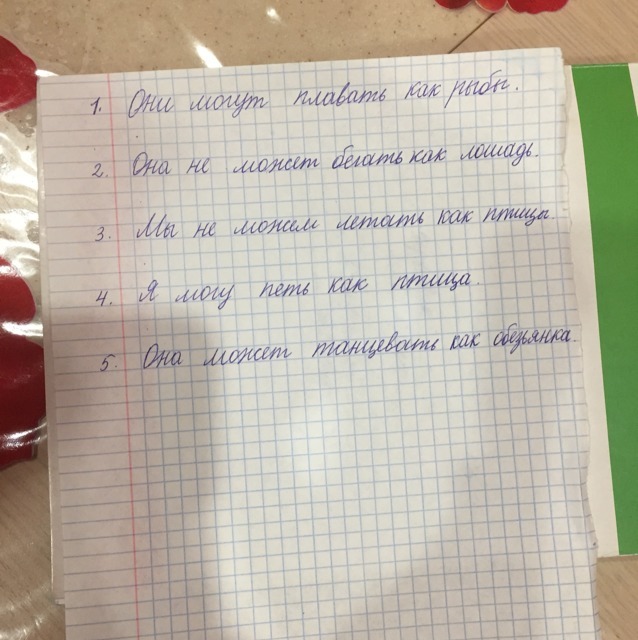 1. Они могут плавать как рыбы.
2. Она не может бегать как лошадь.
3. Мы не можем летать как птицы.
4. Я могу петь как птица.
5. Она может танцевать как обезьянка.